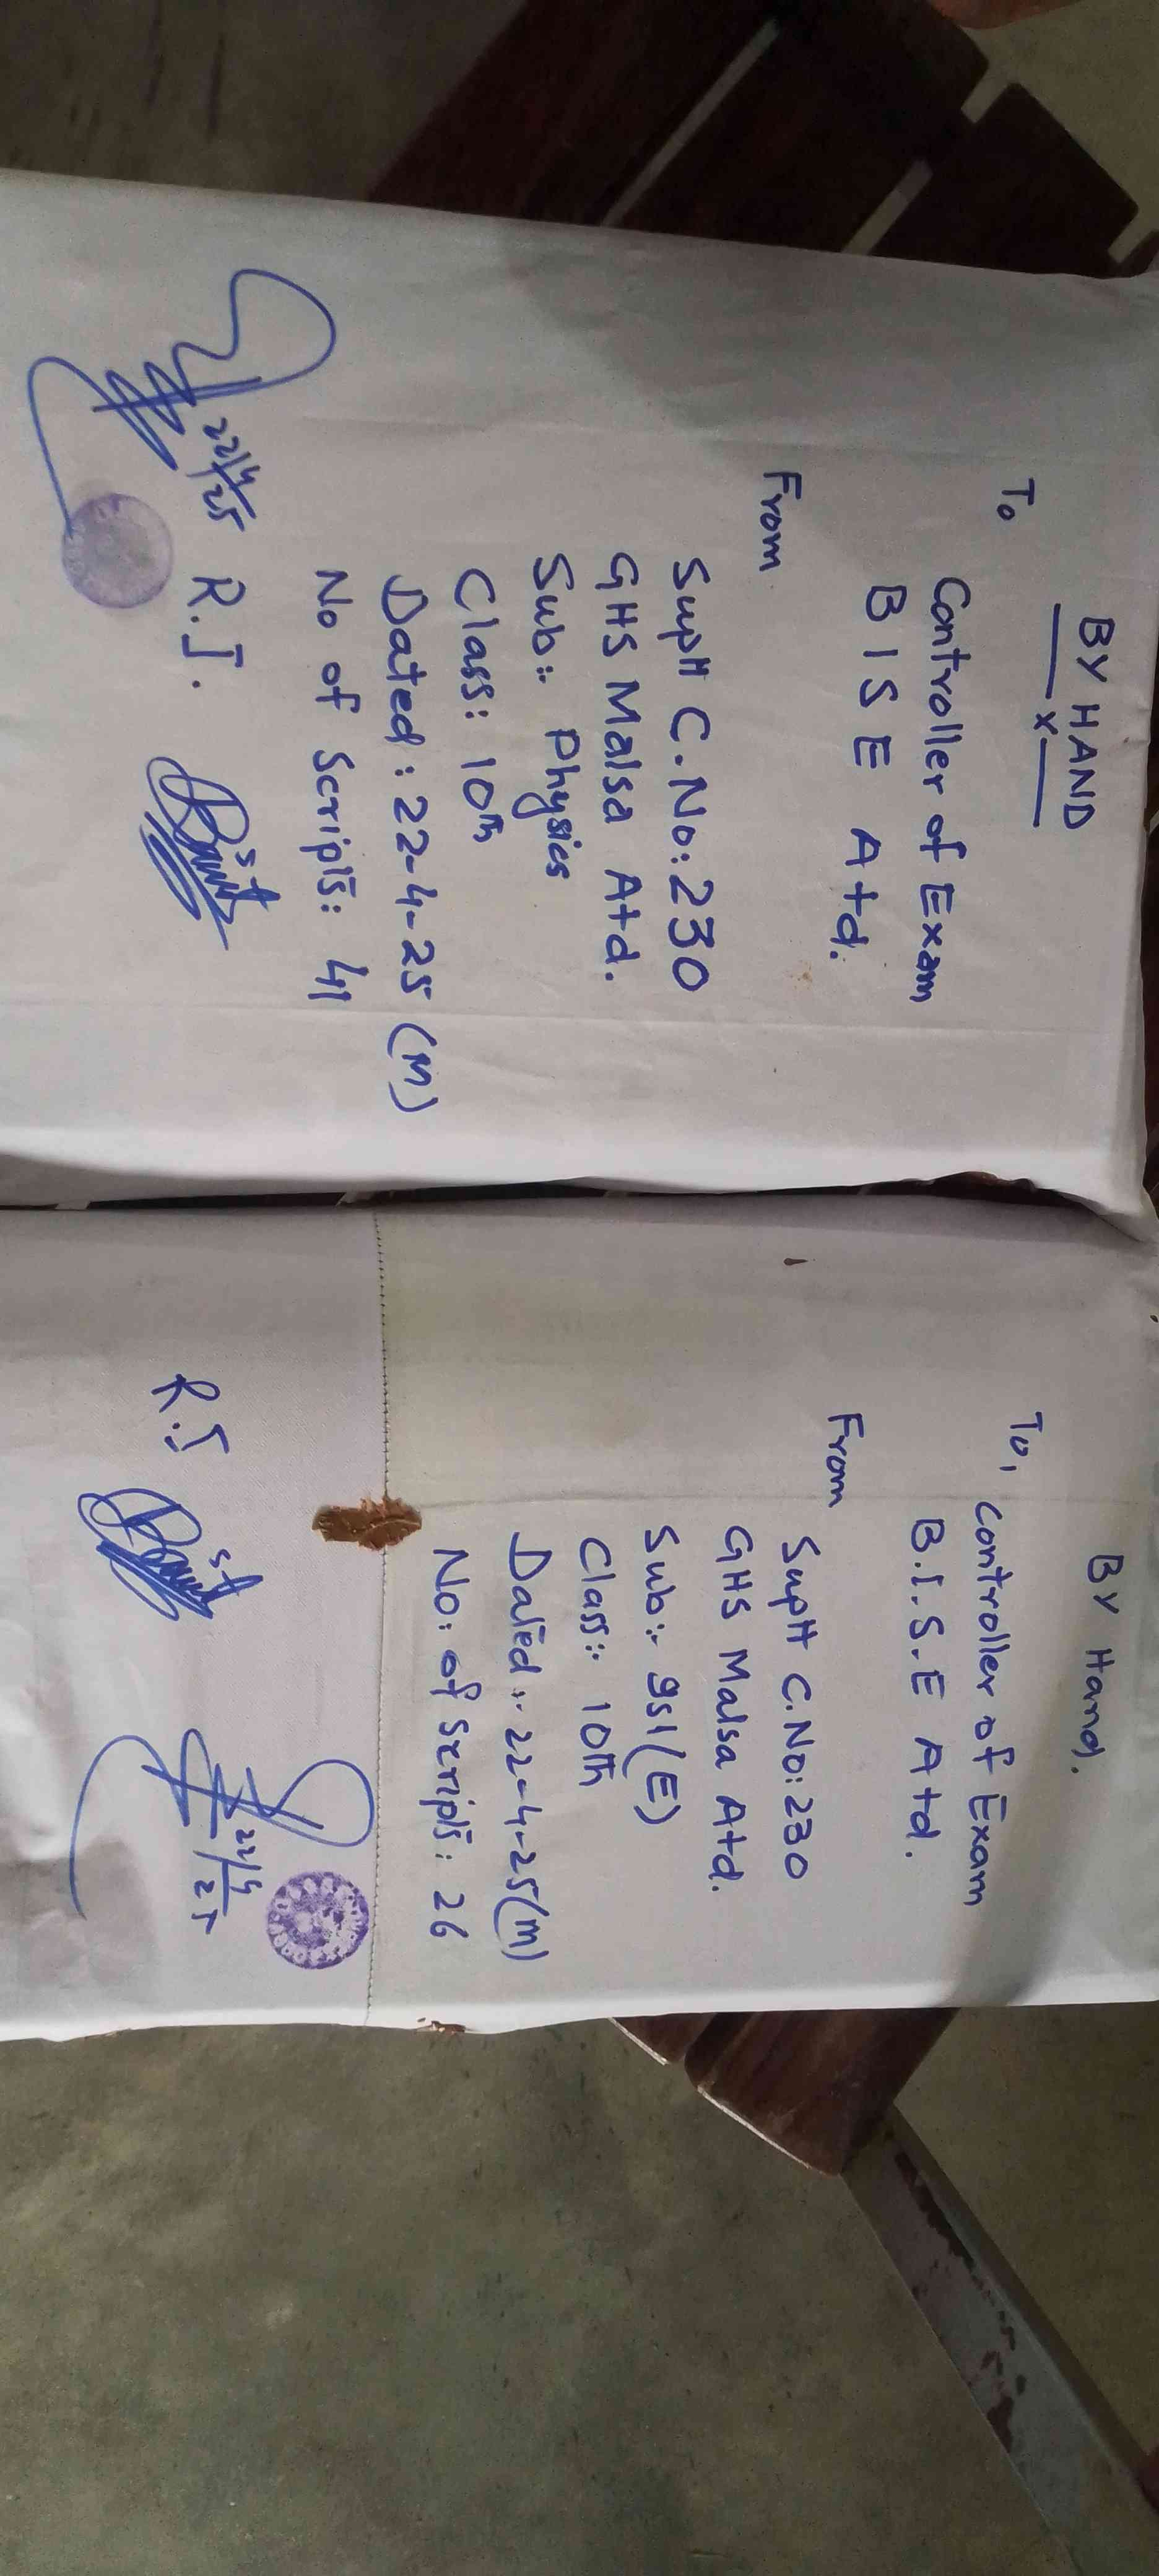 BY HAND
x
To
Controller of Exam
B I S E Atd.
From
Suptt C.No:230
GHS Malsa Atd.
Sub:- Physics
Class: 10th
Dated: 22-4-25 (M)
No of Scripts: 41
22/4/25
R.I.
BY Hand.
To,
Controller of Exam
B.I.S.E Atd.
From
Suptt C.No:230
GHS Malsa Atd.
Sub:- gsl(E)
Class:- 10th
Dated:- 22-4-25(M)
No: of Scripts: 26
R.I
22/4/25